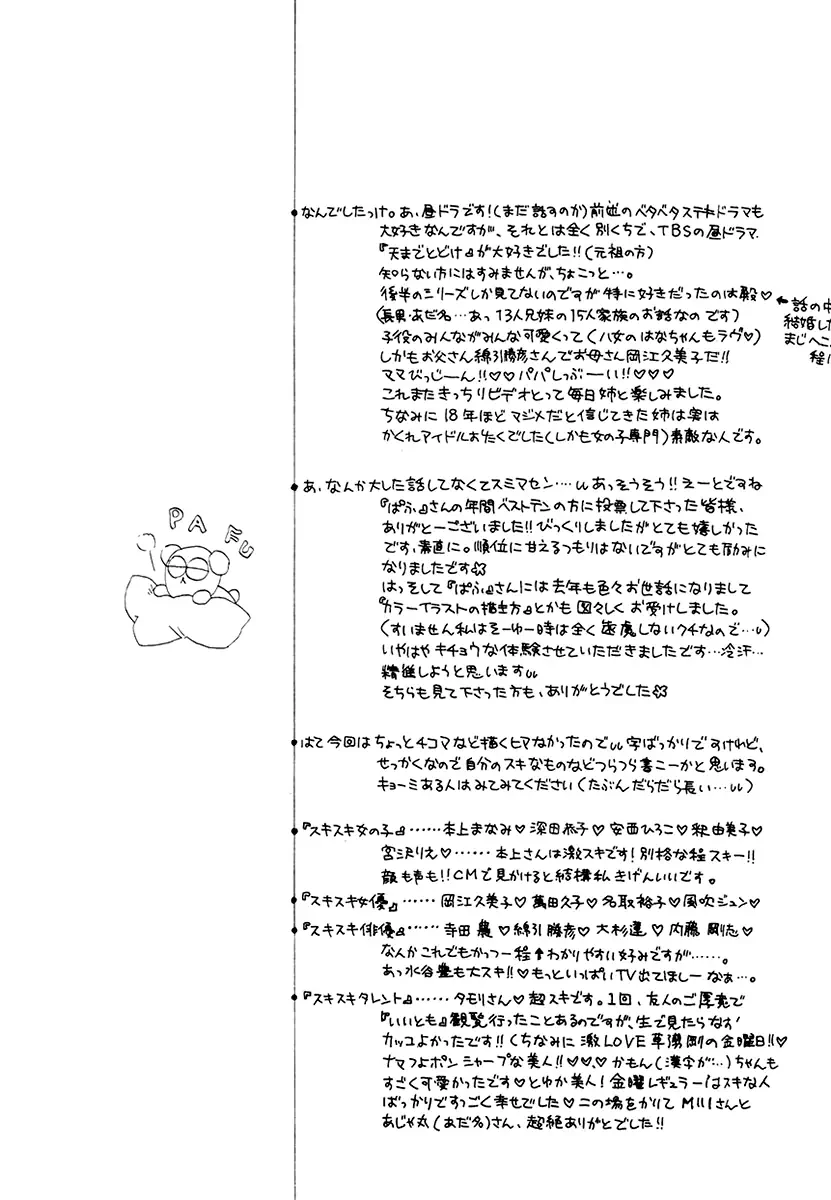 なんでしたっけ。あ、昼ドラです!(まだ話すのか)前述のベタベタステキドラマも
大好きなんですが、それとは全く別くちで、TBSの昼ドラマ
『天までとどけ』が大好きでした!!(元祖の方)
知らない方にはすみませんが、ちょこっと…。
後半のシリーズしか見てないのですが特に好きだったのは殿♡
(長男・あだ名…あっ13人兄妹の15人家族のお話なのです)
子役のみんながみんな可愛くって(八女のはなちゃんもラヴ♡)
しかもお父さん綿引勝彦さんでお母さん岡江久美子だ!!
ママびっじーん!!♡♡パパしっぶーい!!♡♡♡
これまたきっちりビデオとって毎日姉と楽しみました。
ちなみに18年ほどマジメだと信じてきた姉は実は
かくれアイドルおたくでした(しかも女の子専門)素敵な人です。
←話の中
結婚した
まじへこ
程
あ、なんか大した話してなくてスミマセン…あっそうそう!!えーとですね
『ぱふ』さんの年間ベストテンの方に投票して下さった皆様、
ありがとーございました!!びっくりしましたがとても嬉しかった
です、素直に。順位に甘えるつもりはないですがとても励みに
なりましたです
はっそして『ぱふ』さんには去年も色々お世話になりまして
『カラーイラストの描き方』とかも図々しくお受けしました。
(すいません私はそーゆー時は全く遠慮しないクチなので…)
いやはやキチョウな体験させていただきましたです…冷汗…
精進しようと思います
そちらも見て下さった方も、ありがとうでした
PA FU
はて今回はちょっと4コマなど描くヒマなかったので字ばっかりですけれど、
せっかくなので自分のスキなものなどつらつら書こーかと思います。
キョーミある人はみてみてください(たぶんだらだら長い…)
『スキスキ女の子』……本上まなみ♡深田恭子♡安西ひろこ♡釈由美子♡
宮沢りえ♡……本上さんは激スキです!別格な程スキー!!
顔も声も!!CMで見かけると結構私きげんいいです。
『スキスキ女優』……岡江久美子♡萬田久子♡名取裕子♡風吹ジュン♡
『スキスキ俳優』……寺田農♡綿引勝彦♡大杉漣♡内藤剛志♡
なんかこれでもかっつー程↑わかりやすい好みですが……。
あっ水谷豊も大スキ!!♡もっといっぱいTV出てほしーなぁ…。
『スキスキタレント』……タモリさん♡超スキです。1回、友人のご厚意で
『いいとも』観覧行ったことあるのですが、生で見たらなお
カッコよかったです!!(ちなみに激LOVE草彅剛の金曜日!!♡
ナマつよポンシャープな美人!!♡♡♡かもん(漢字が…)ちゃんも
すごく可愛かったです♡とゆか美人!金曜レギュラーはスキな人
ばっかりですっごく幸せでした♡この場をかりてMillさんと
あじゃ丸(あだ名)さん、超絶ありがとでした!!